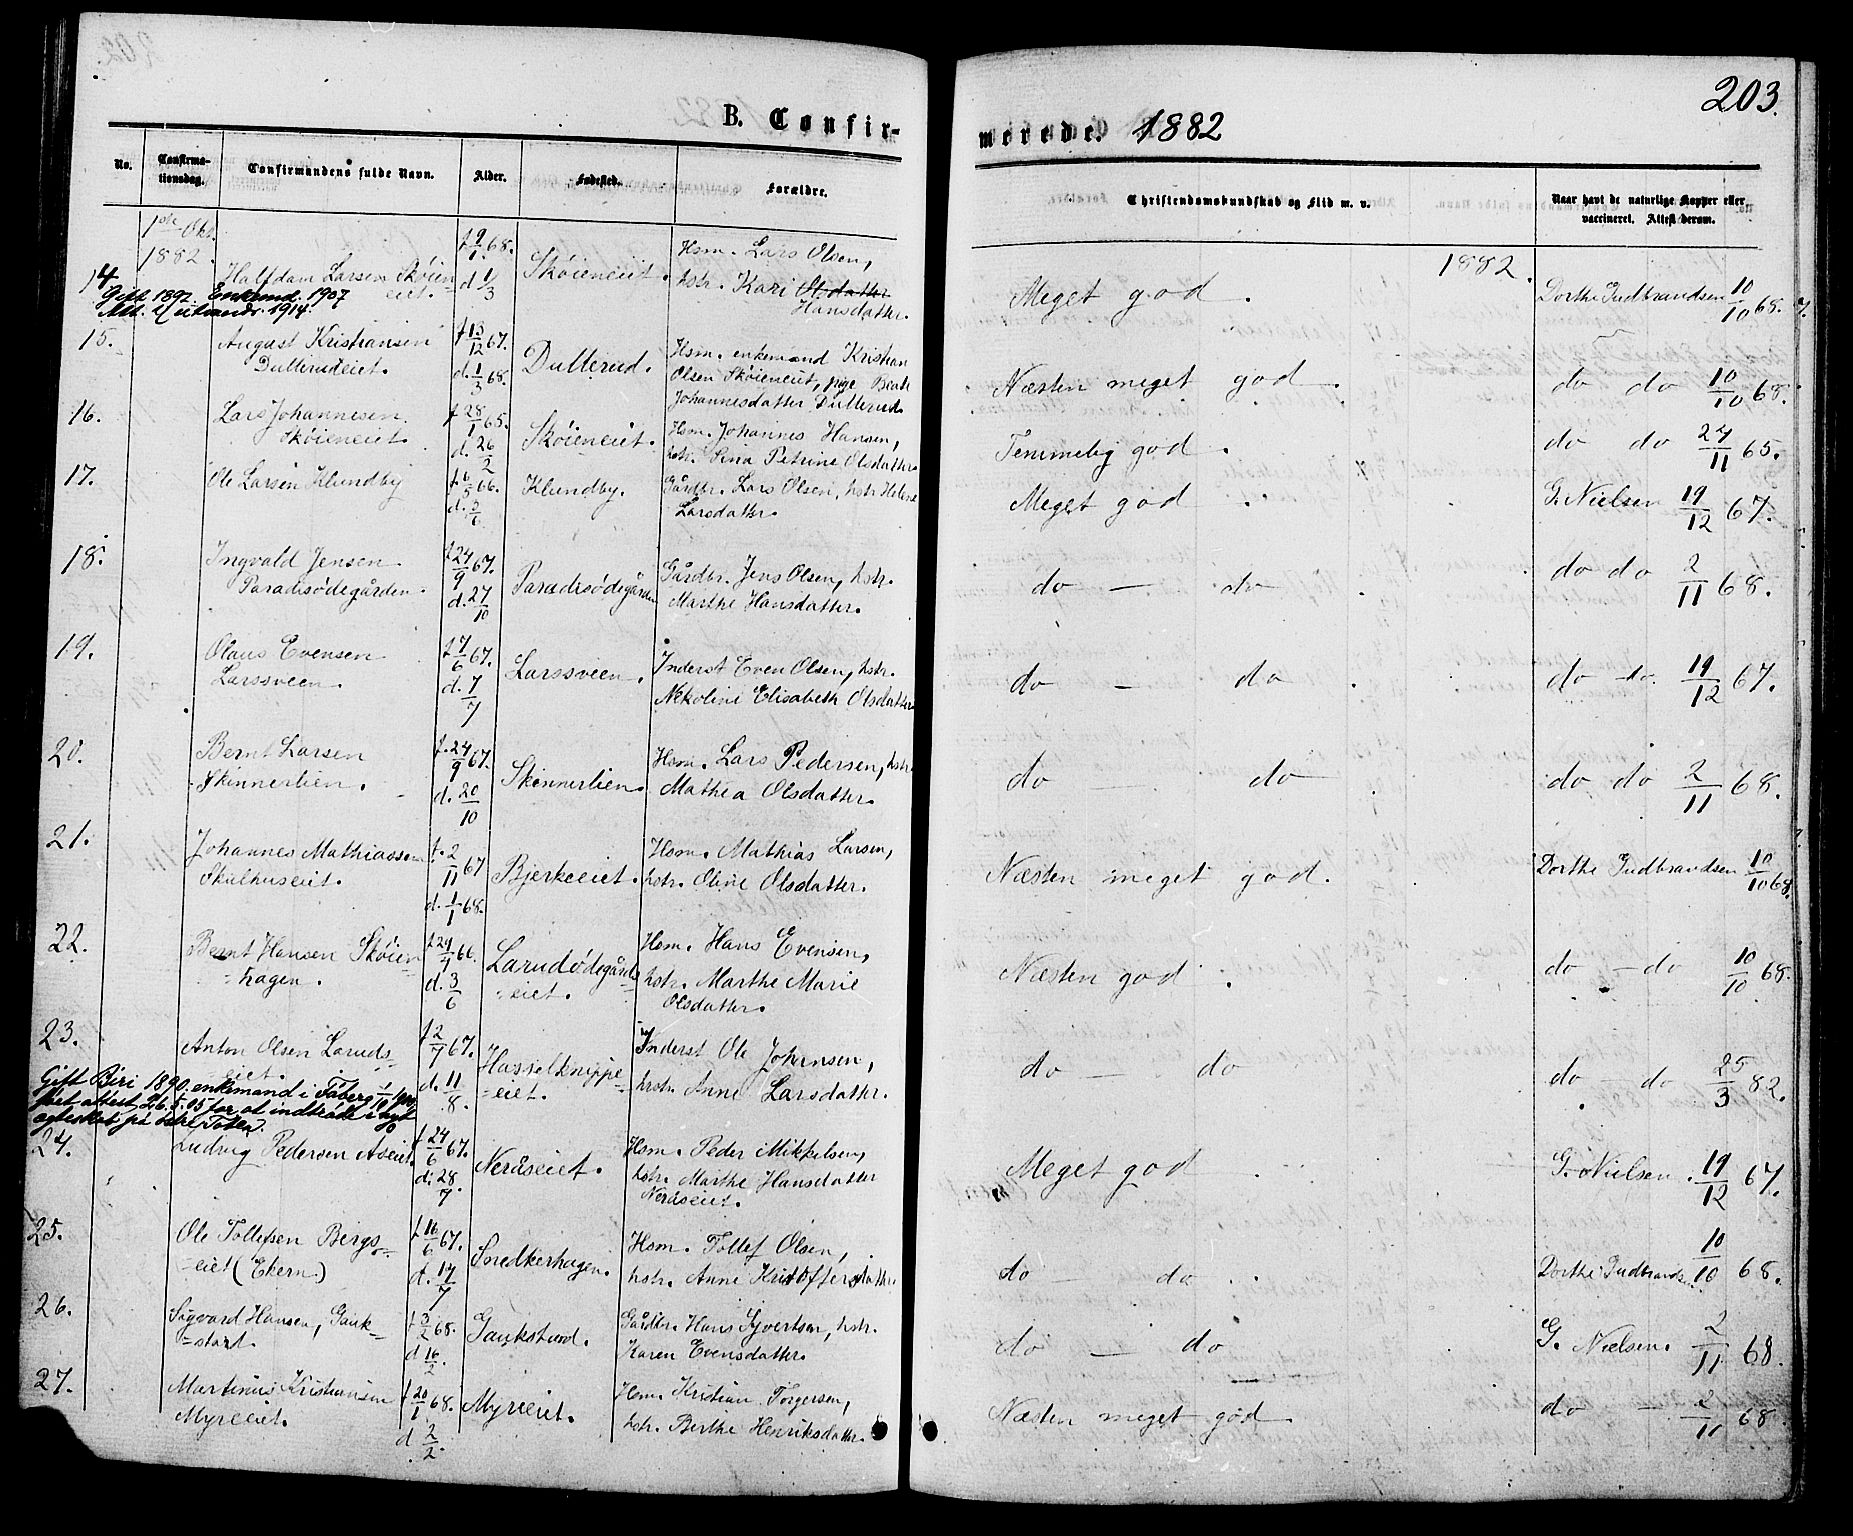 203.
B. Confir-
merede. 1882
No.
Confirma-
tionsdag.
Confirmandens fulde Navn.
Alder.
Fødested.
Forældre.
Christendomskundskab og Flid m. v.
Naar havt de naturlige Kopper eller
vaccineret. Attest derom.
1ste Okt.
1882.
1882.
14
Halfdan Larsen Skøien
eiet.
f 9/1 68.
d 1/3
Skøieneiet.
Hsm. Lars Olsen,
hstr. Kari Olsdatter
Hansdatter.
Meget god.
Dorthe Gudbrandsen 10/10 68.
Gift 1892. Enkemd. 1907
Att. utvandr. 1914.
15.
August Kristiansen
Dullerudeiet.
f 13/12 67.
d. 1/3 68.
Dullerud.
Hsm. enkemand Kristian
Olsen Skøieneiet, pige Beate
Johannesdatter Dullerud.
Næsten meget god.
do do 10/10 68.
16.
Lars Johannesen
Skøieneiet.
f 28/1 65.
d. 26/2
Skøieneiet.
Hsm. Johannes Hansen,
hstr. Sina Petrine Olsdatter.
Temmelig god.
do do 27/11 65.
17.
Ole Larsen Klundby
f. 6/5 66.
d. 3/6
Klundby.
Gårdbr. Lars Olsen, hstr Helene
Larsdatter.
Meget god.
G. Nielsen 19/12 67.
18.
Ingvald Jensen
Paradisødegården.
f 24/9 67.
d. 27/10
Paradisødegården
Gårdbr. Jens Olsen, hstr.
Marthe Hansdatter.
do — do
do do 2/11 68.
19.
Olaus Evensen
Larssveen.
f 7/6 67.
d. 7/7
Larssveen.
Inderst Even Olsen, hstr.
Nekoline Elisabeth Olsdatter
do — do
do do. 19/12 67.
20.
Bernt Larsen
Skinnerlien.
f. 24/9 67.
d. 20/10
Skinnerlien.
Hsm. Lars Pedersen, hstr
Mathea Olsdatter.
do — do
do do 2/11 68.
21.
Johannes Mathiassen
Skulhuseiet.
f. 2/11 67
d. 1/1 68.
Bjerkeeiet.
Hsm. Mathias Larsen,
hstr. Oline Olsdatter.
Næsten meget god.
Dorthe Gudbrandsen 10/10 68
22.
Bernt Hansen Skøien
=hagen.
f 29/4 66.
d. 3/6
Larudødegårds
=eiet.
Hsm. Hans Evensen,
hstr. Marthe Marie
Olsdatter.
Næsten god.
do — do 10/10 68.
23.
Anton Olsen Laruds=
eiet.
f 2/7 67.
d. 11/8.
Hasselknippe=
=eiet.
Inderst Ole Johansen,
hstr. Anne Larsdatter.
do — do
do — do 25/3 82.
Gift Biri 1890. enkemand i Fåberg
attest 26.5.05 for at indtræde i nyt
egteskab på østre Toten.
24.
Ludvig Pedersen Aseiet.
f 24/6 67.
d. 28/7.
Neråseiet.
Hsm. Peder Mikkelsen,
hstr. Marthe Hansdatter
Neråseiet.
Meget god
G. Nielsen. 19/12 67.
25.
Ole Tollefsen Bergs=
=eiet (Ekern.)
f 16/6 67.
d. 17/7
Snedkerhagen.
Hsm. Tollef Olsen,
hstr. Anne Kristoffersdatter.
do — do
Dorthe Gudbrandsen 10/10 68.
26.
Sigvard Hansen, Gauk=
=start.
f 3/2 68.
d 16/2.
Gaukstad.
Gårdbr. Hans Syvertsen, hstr.
Karen Evensdatter.
do — do
G. Nielsen. 2/11 68.
27.
Martinus Kristiansen
Myreeiet.
f 20/1 68.
d 2/2.
Myreeiet.
Hsm. Kristian Torgersen,
hstr. Berthe Henriksdatter.
Næsten meget god
do — 2/11 68.